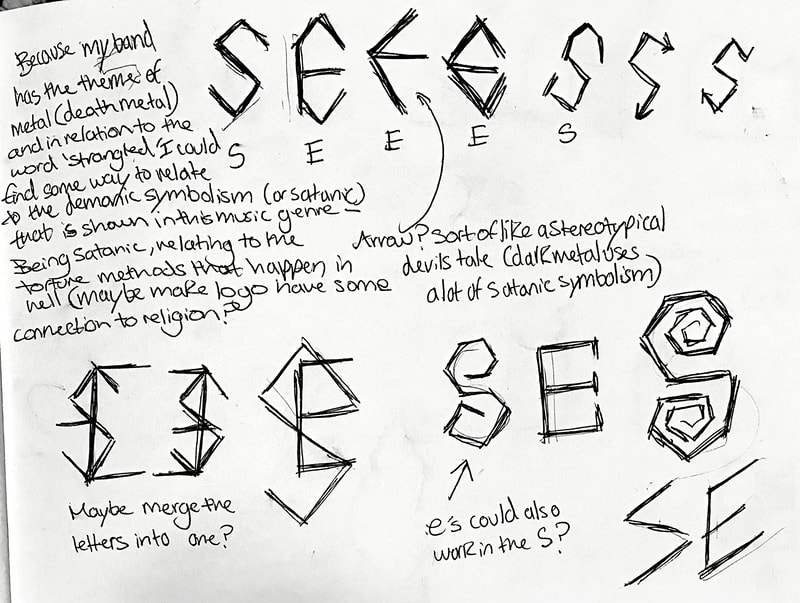 Because my band
has the theme of
metal (death metal)
and in relation to the
word 'strangled' I could
find some way to relate
to the demonic symbolism (or satanic)
that is shown in this music genre -
Being satanic, relating to the
torture methods that happen in
hell (maybe make logo have some
connection to religion?
S E E E S
Arrow? sort of like a stereotypical
devils tale (dark metal uses
a lot of satanic symbolism)
Maybe merge the
letters into one?
S E
.e's could also
work in the S?
S E